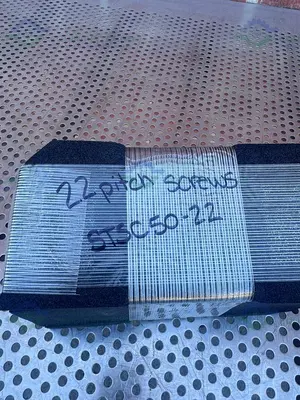 22 pitch SCREWS
STSC50-22